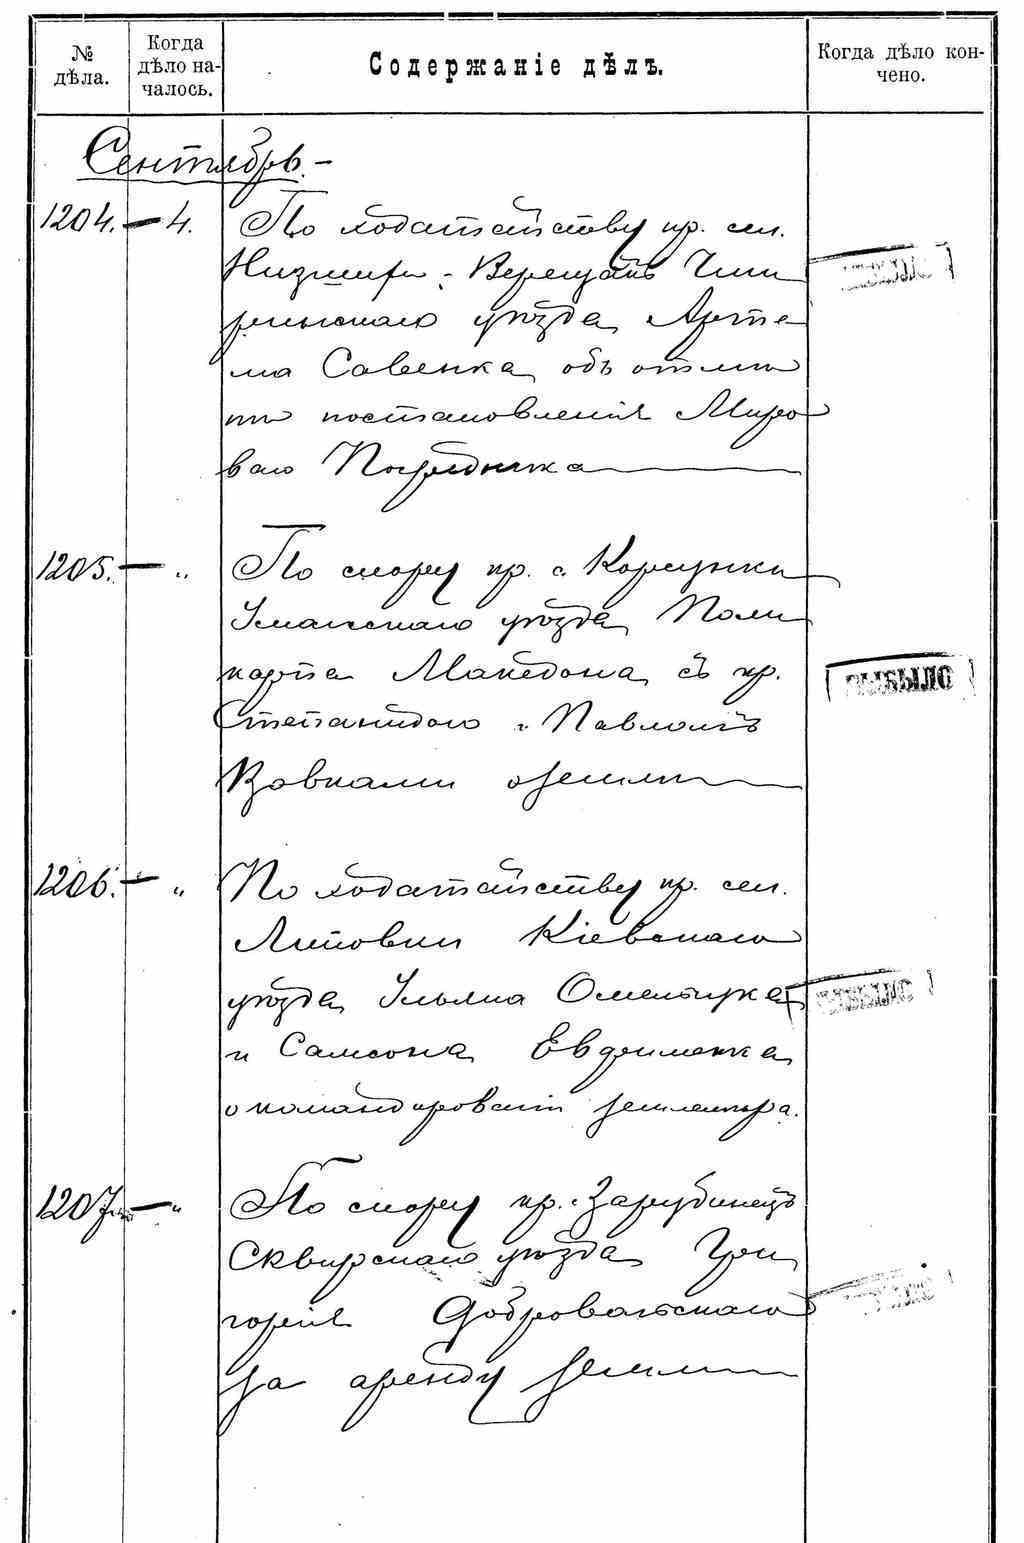 № дѣла.
Когда дѣло началось.
Содержаніе дѣлъ.
Когда дѣло кончено.
Сентябрь. –
1204. – 4. По ходатайству кр. сел.
Верещакъ Чиги
ринскаго уѣзда Арте
ма Савенка объ отмѣ
нѣ постановленія Миро
ваго Посредника
1205. – „ По спору кр. с. Корсунки
Уманскаго уѣзда Поли
карпа Македона съ кр.
Степанидою и Павломъ
Вовками о землѣ
ВЫБЫЛО
1206. – „ По ходатайству кр. сел.
Литовки Кіевскаго
уѣзда Ульяна Омельчука
и Самсона Евдоименка
о командированіи землемѣра.
1207. – „ По спору кр. с. Зарубинецъ
Сквирскаго уѣзда Гри
горія Добровольскаго
за аренду земли